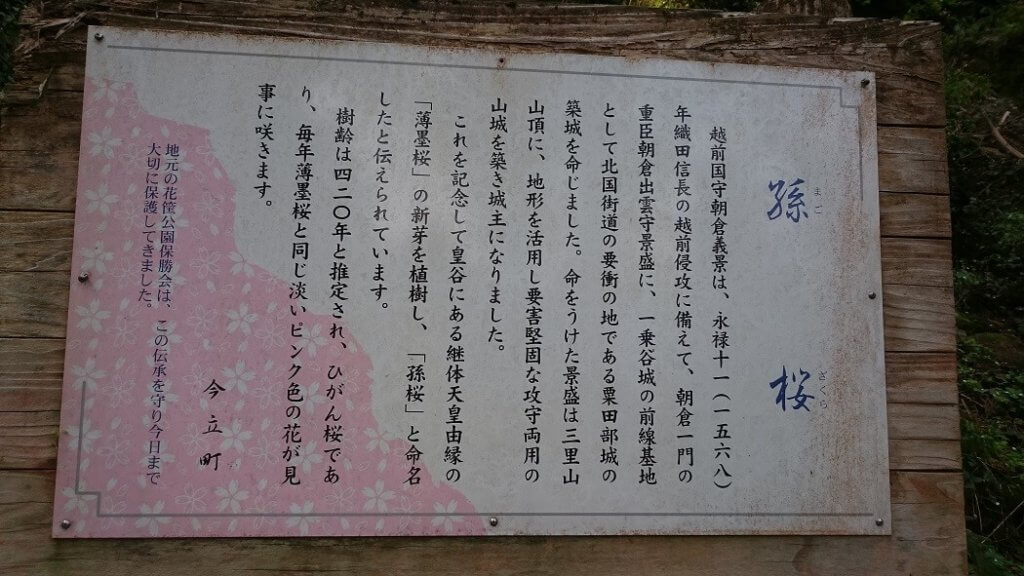 孫桜
まござくら
越前国守朝倉義景は、永禄十一(一五六八)
年織田信長の越前侵攻に備えて、朝倉一門の
重臣朝倉出雲守景盛に、一乗谷城の前線基地
として北国街道の要衝の地である粟田部城の
築城を命じました。命をうけた景盛は三里山
山頂に、地形を活用し要害堅固な攻守両用の
山城を築き城主になりました。
これを記念して皇谷にある継体天皇由縁の
「薄墨桜」の新芽を植樹し、「孫桜」と命名
したと伝えられています。
樹齢は四二〇年と推定され、ひがん桜であ
り、毎年薄墨桜と同じ淡いピンク色の花が見
事に咲きます。
今立町
地元の花筐公園保勝会は、この伝承を守り今日まで
大切に保護してきました。